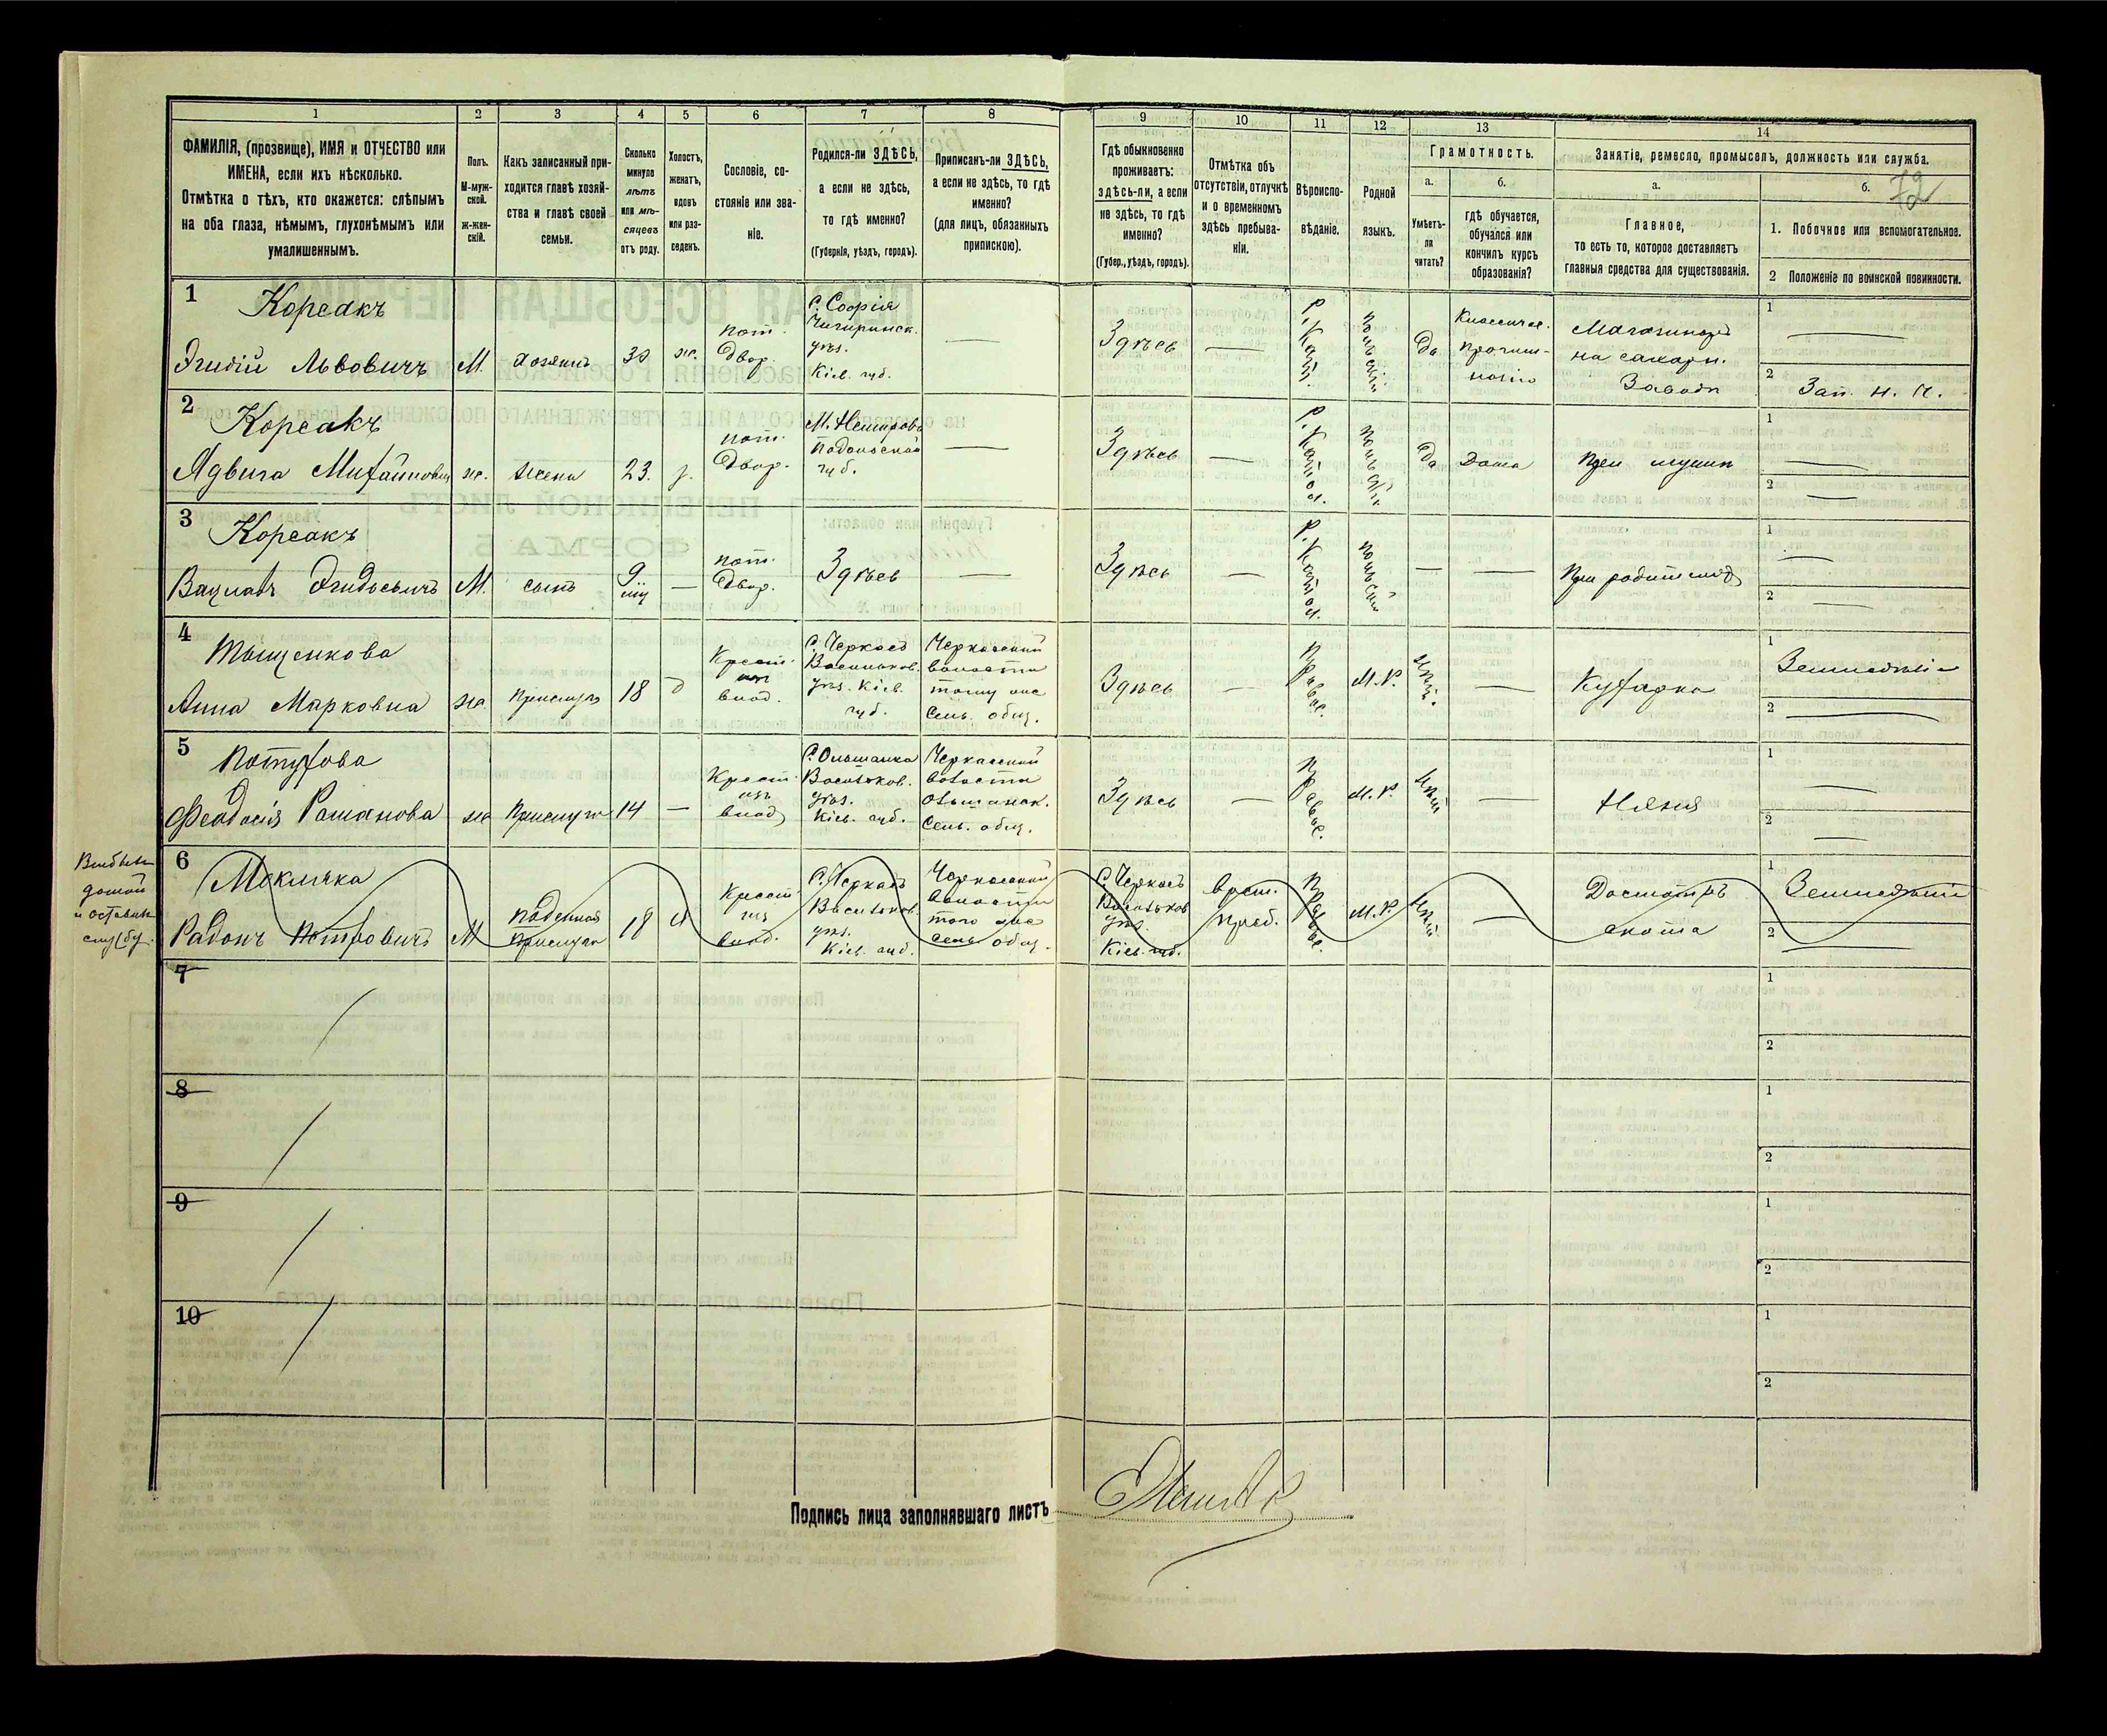 1 2 3 4 5 6 7 8 9 10 11 12 13 14
ФАМИЛІЯ, (прозвище), ИМЯ и ОТЧЕСТВО или
ИМЕНА, если ихъ нѣсколько.
Отмѣтка о тѣхъ, кто окажется: слѣпымъ
на оба глаза, нѣмымъ, глухонѣмымъ или
умалишеннымъ.
Полъ.
М-муж-
ской.
ж-жен-
скій.
Какъ записанный при-
ходится главѣ хозяй-
ства и главѣ своей
семьи.
Сколько
минуло
лѣтъ
или мѣ-
сяцевъ
отъ роду.
Холостъ,
женатъ,
вдовъ
или раз-
веденъ.
Сословіе, со-
стояніе или зва-
ніе.
Родился-ли ЗДѢСЬ,
а если не здѣсь,
то гдѣ именно?
(Губернія, уѣздъ, городъ).
Приписанъ-ли ЗДѢСЬ,
а если не здѣсь, то гдѣ
именно?
(для лицъ, обязанныхъ
припискою).
Гдѣ обыкновенно
проживаетъ:
здѣсь-ли, а если
не здѣсь, то гдѣ
именно?
(Губер., уѣздъ, городъ).
Отмѣтка объ
отсутствіи, отлучкѣ
и о временномъ
здѣсь пребыва-
ніи.
Вѣроиспо-
вѣданіе.
Родной
языкъ.
Грамотность.
а.
Умѣетъ-
ли
читать?
б.
гдѣ обучается,
обучался или
кончилъ курсъ
образованія?
Занятіе, ремесло, промыселъ, должность или служба.
а.
Главное,
то есть то, которое доставляетъ
главныя средства для существованія.
б.
72
1. Побочное или вспомогательное.
2 Положеніе по воинской повинности.
1
Корсакъ
Эгидій Львовичъ
М.
хозяинъ
30
ж.
пот.
двор.
С. Софія
Чигиринск.
уѣз.
Кіев. губ.
Здѣсь
Р. Катол.
польскій
да
Классичес.
прогим-
назію
на сахарн.
Заводѣ
1
2
Зап. н. г.
2
Корсакъ
Ядвига
ж.
жена
23.
пот.
двор.
М. Немировъ
Подольской
губ.
Здѣсь
Р. Катол.
польскій
да
Дома
при мужѣ
1
2
3
Корсакъ
Вацлавъ Эгидоевичъ
М.
сынъ
9
пот.
двор.
Здѣсь
Здѣсь
Р. Катол.
польскій
При родителяхъ
1
2
4
Тыщенкова
Анна Марковна
ж.
Прислуга
18
д
Крест.
из
влад.
С. Черкасъ
Васильков.
уѣз. Кіев.
губ.
Черкасской
волости
тому же
сель. общ.
Здѣсь
Правос.
М. Р.
Кухарка
1
Земледѣліе
2
5
Потухова
Феодосія Романова
ж.
Прислуга
14
Крест.
изъ
влад.
С. Ольшанка
Васильков.
уѣз.
Кіев. губ.
Черкасской
волости
ольшанск.
сель. общ.
Здѣсь
Правос.
М. Р.
Няня
1
2
домой
и оставилъ
службу.
6
Меклячка
Радонъ Петровичъ
М
поденная
прислуга
18
Крест.
изъ
влад.
С. Черкасъ
Васильков.
уѣз.
Кіев. губ.
Черкасской
волости
того же
сель. общ.
С. Черкасъ
Васильков
уѣз.
Кіев. губ.
Врем.
преб.
Правос.
М. Р.
Досмотръ
скота
1
Земледѣліе
2
7
1
2
8
1
2
9
1
2
10
1
2
Подпись лица заполнявшаго листъ